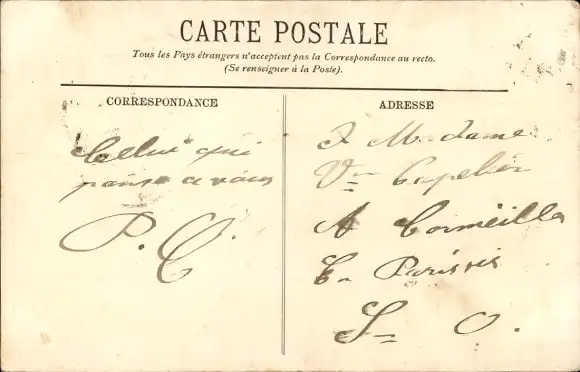 CARTE POSTALE
Tous les Pays étrangers n'acceptent pas la Correspondance au recto.
(Se renseigner à la Poste).
CORRESPONDANCE
Celui qui
panse a vous
P. C.
ADRESSE
A Madame
Vve Capelier
A Cormeille
En Parisis
S O.